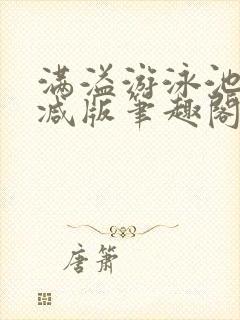 满溢游泳池
减版笔趣阁
唐箫